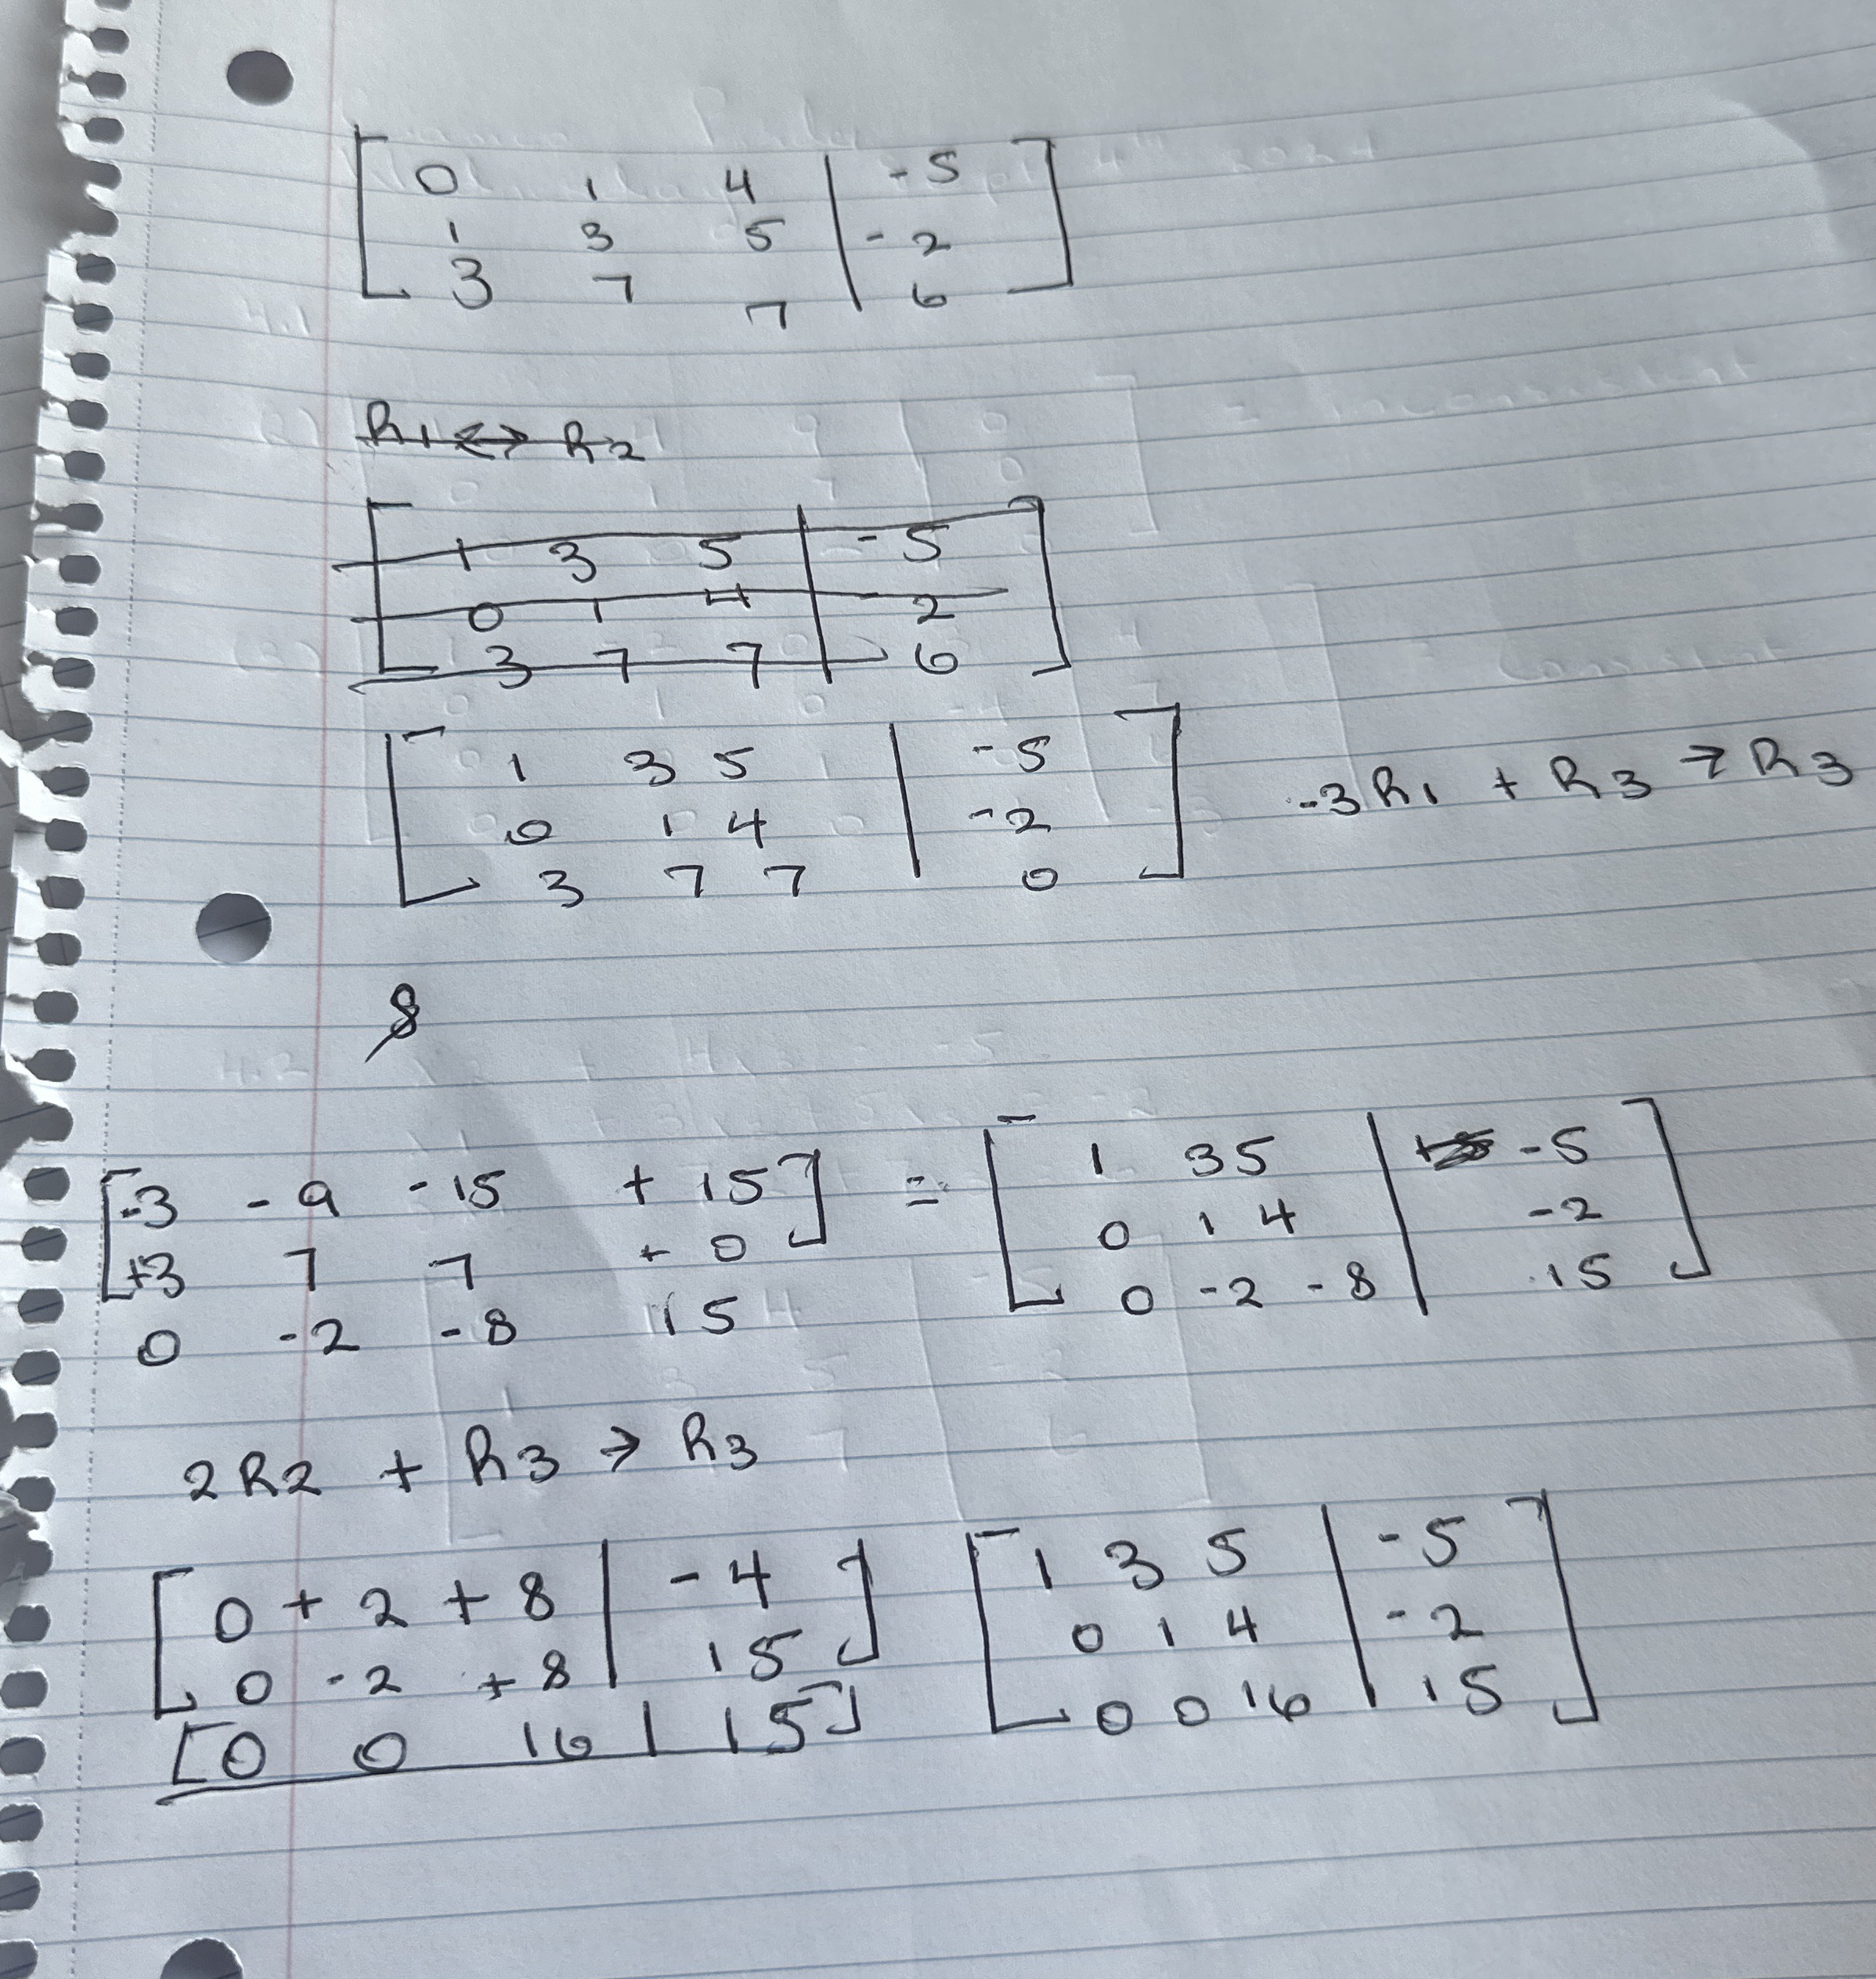 0 1 4 | -5
1 3 5 | -2
3 7 7 | 6
R1 ↔ R2
1 3 5 | -5
0 1 4 | -2
3 7 7 | 6
1 3 5 | -5
0 1 4 | -2
3 7 7 | 0
-3R1 + R3 → R3
8
-3 -9 -15 +15
+3 7 7 +0
0 -2 -8 15
=
1 3 5 | -5
0 1 4 | -2
0 -2 -8 | 15
2R2 + R3 → R3
0 + 2 + 8 | -4
0 -2 +8 | 15
[0 0 16 | 15]
1 3 5 | -5
0 1 4 | -2
0 0 16 | 15